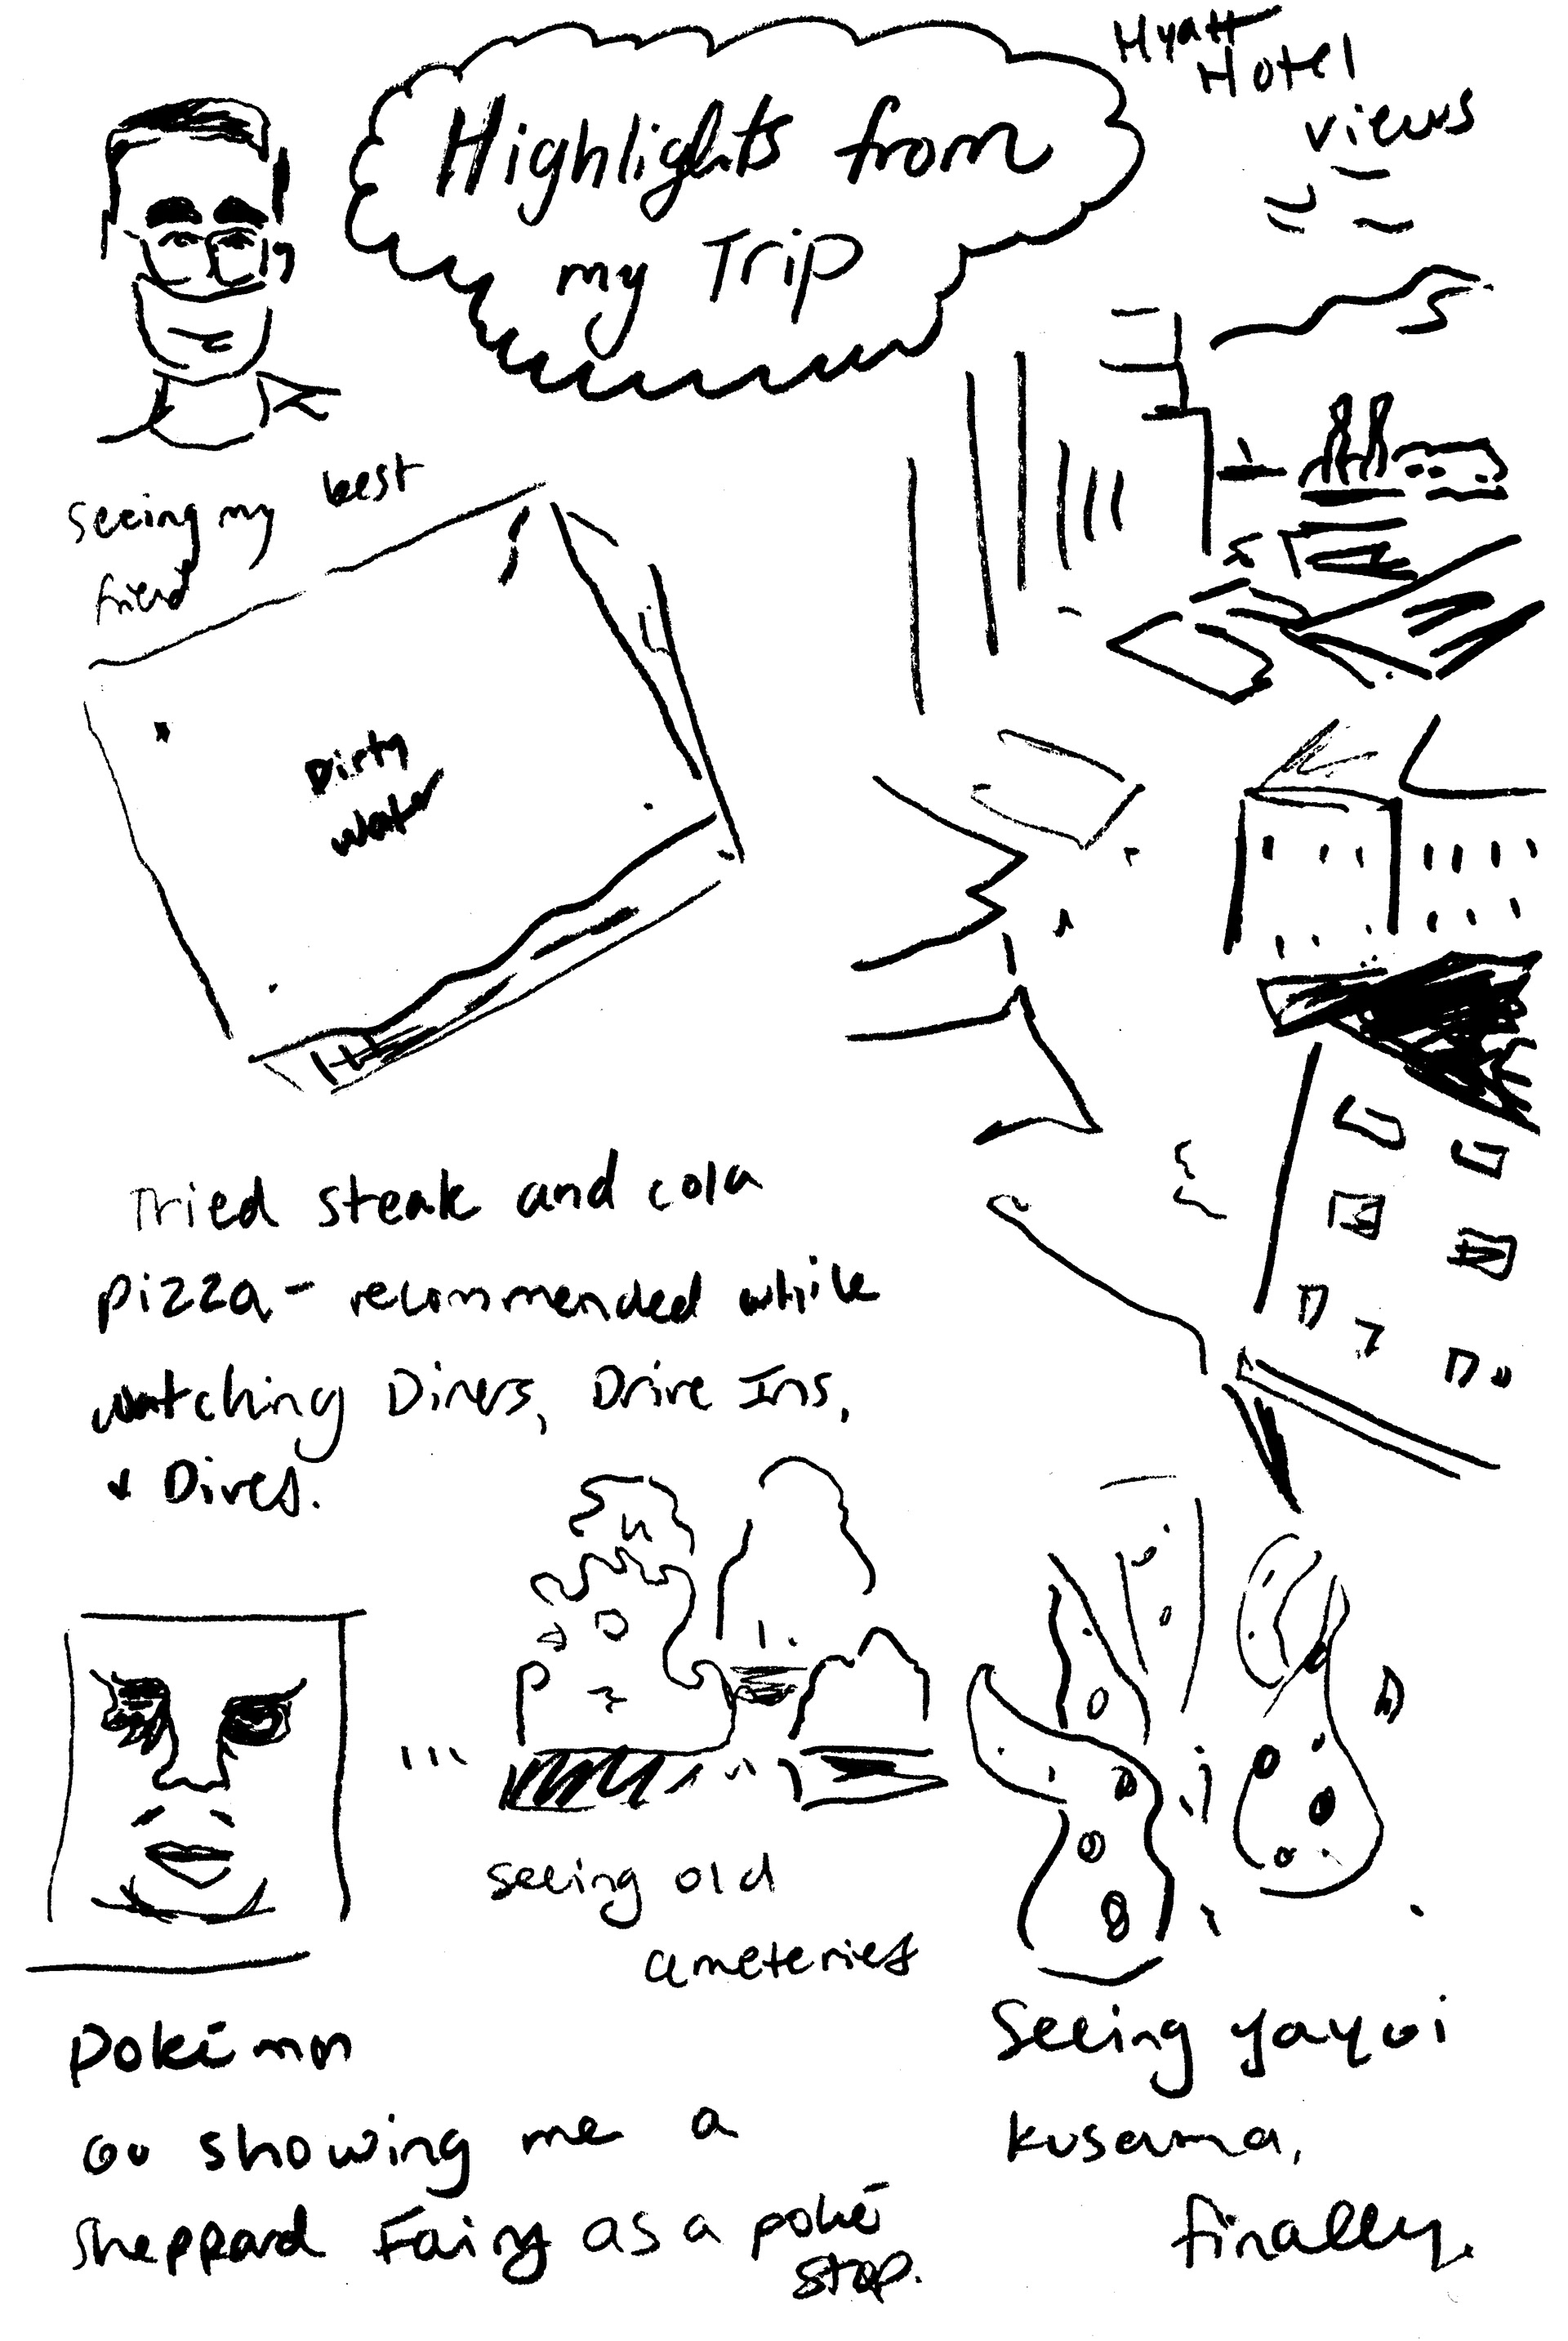 Highlights from
my Trip
Hyatt
Hotel
views
seeing my best
friend
Dirty
Water
Tried steak and cola
pizza - recommended while
watching Diners, Drive Ins,
+ Dives.
seeing old
cemeteries
Pokémon
Go showing me a
Sheppard Fairy as a poké
stop.
Seeing Yayoi
Kusama,
finally.